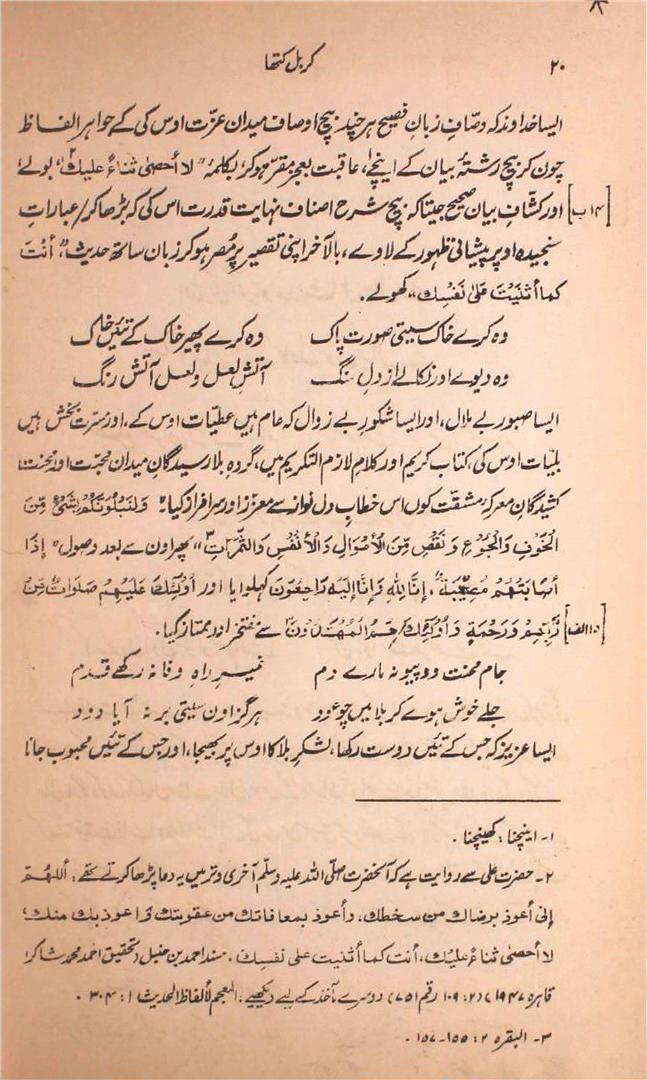 ۲۰
کربل کتھا
ایسا خداوند کہ وصّافِ زبانِ فصیح ہر چند بیچ اوصاف میدان عزّت اوس کی کے جواہر الفاظ
چون کر بیچ رشتۂ بیان کے اینچے۱، عاقبت بعجز مقر ہو کر، بکلمۂ "لا أحصی ثناءً علیك۲" بولے،
[۱۴ب] اور کشّافِ بیان صحیح جیتا کہ بیچ شرح اصناف نہایت قدرت اس کی کہ بڑھا کر/عبارات
سنجیدہ اوپر پیشانی ظہور کے لاوے، بالآخر اپنی تقصیر پر مُصر ہو کر زبان ساتھ حدیث "أنت
کما أثنیت علیٰ نفسِك" کھولے.
وہ کرے خاک سیتی صورت پاک وہ کرے پھیر خاک کے تئیں خاک
وہ دیوے اور نکالے از دلِ سنگ آتشِ لعل و لعل آتش رنگ
ایسا صبور بے ملال، اور ایسا شکورِ بے زوال کہ عام ہیں عطیّات اوس کے، اور مسرّت بخش ہیں
بلیّات اوس کی، کتاب کریم اور کلامِ لازم التکریم میں، گروہِ بلا رسیدگانِ میدان محبّت اور محنت
کشیدگانِ معرکہ مشقّت کوں اس خطابِ دل نواز سے معزّز اور سرافراز کیا: "وَلَنَبْلُوَنَّكُمْ بِشَیْءٍ مِنَ
الْخَوْفِ وَالْجُوْعِ وَ نَقْصٍ مِّنَ الْأَمْوَالِ وَ الْأَنْفُسِ وَالثَّمَرَاتِ۳" پھر اون سے بعد وصول "إِذَا
أَصَابَتْهُمْ مُصِیْبَةٌ، إِنَّا لِلّٰهِ وَإِنَّا إِلَیْهِ رَاجِعُونَ کہلوایا اور أُولٰئِكَ عَلَیْهِمْ صَلَوَاتٌ مِّنْ
[۱۵الف] رَّبِّهِمْ وَرَحْمَةٌ وَ أُولٰئِكَ/هُمُ الْمُهْتَدُونَ" سے مفتخر اور ممتاز کیا.
جام محنت دو پیو نہ مارے دم غیر راہِ وفا نہ رکھے قدم
جلے خوش ہوے کربلا میں جو عود ہرگز اون سیتی بر نہ آیا دود
ایسا عزیز کہ جس کے تئیں دوست رکھا، لشکرِ بلا کا اوس پر بھیجا، اور جس کے تئیں محبوب جانا
۱- اینچنا: کھینچنا.
۲- حضرت علی سے روایت ہے کہ آنحضرت صلّی اللہ علیہ وسلّم آخری وتر میں یہ دعا پڑھا کرتے تھے: أللهُمّ
إنی أعوذ برضاك من سخطك، وأعوذ بمعافاتك من عقوبتك وَأعوذبك منك،
لا أحصی ثناءً علیك، أنت كما أثنیت علی نفسِك. مسند احمد بن حنبل (تحقیق احمد محمد شاکر؛
قاہرہ ۱۹۴۷) ۲: ۱۰۹ رقم (۷۵۱) دوسرے مآخذ کے لیے دیکھیے: المعجم لألفاظ الحدیث ۱: ۳۰۴.
۳- البقرہ ۲: ۱۵۵-۱۵۷.